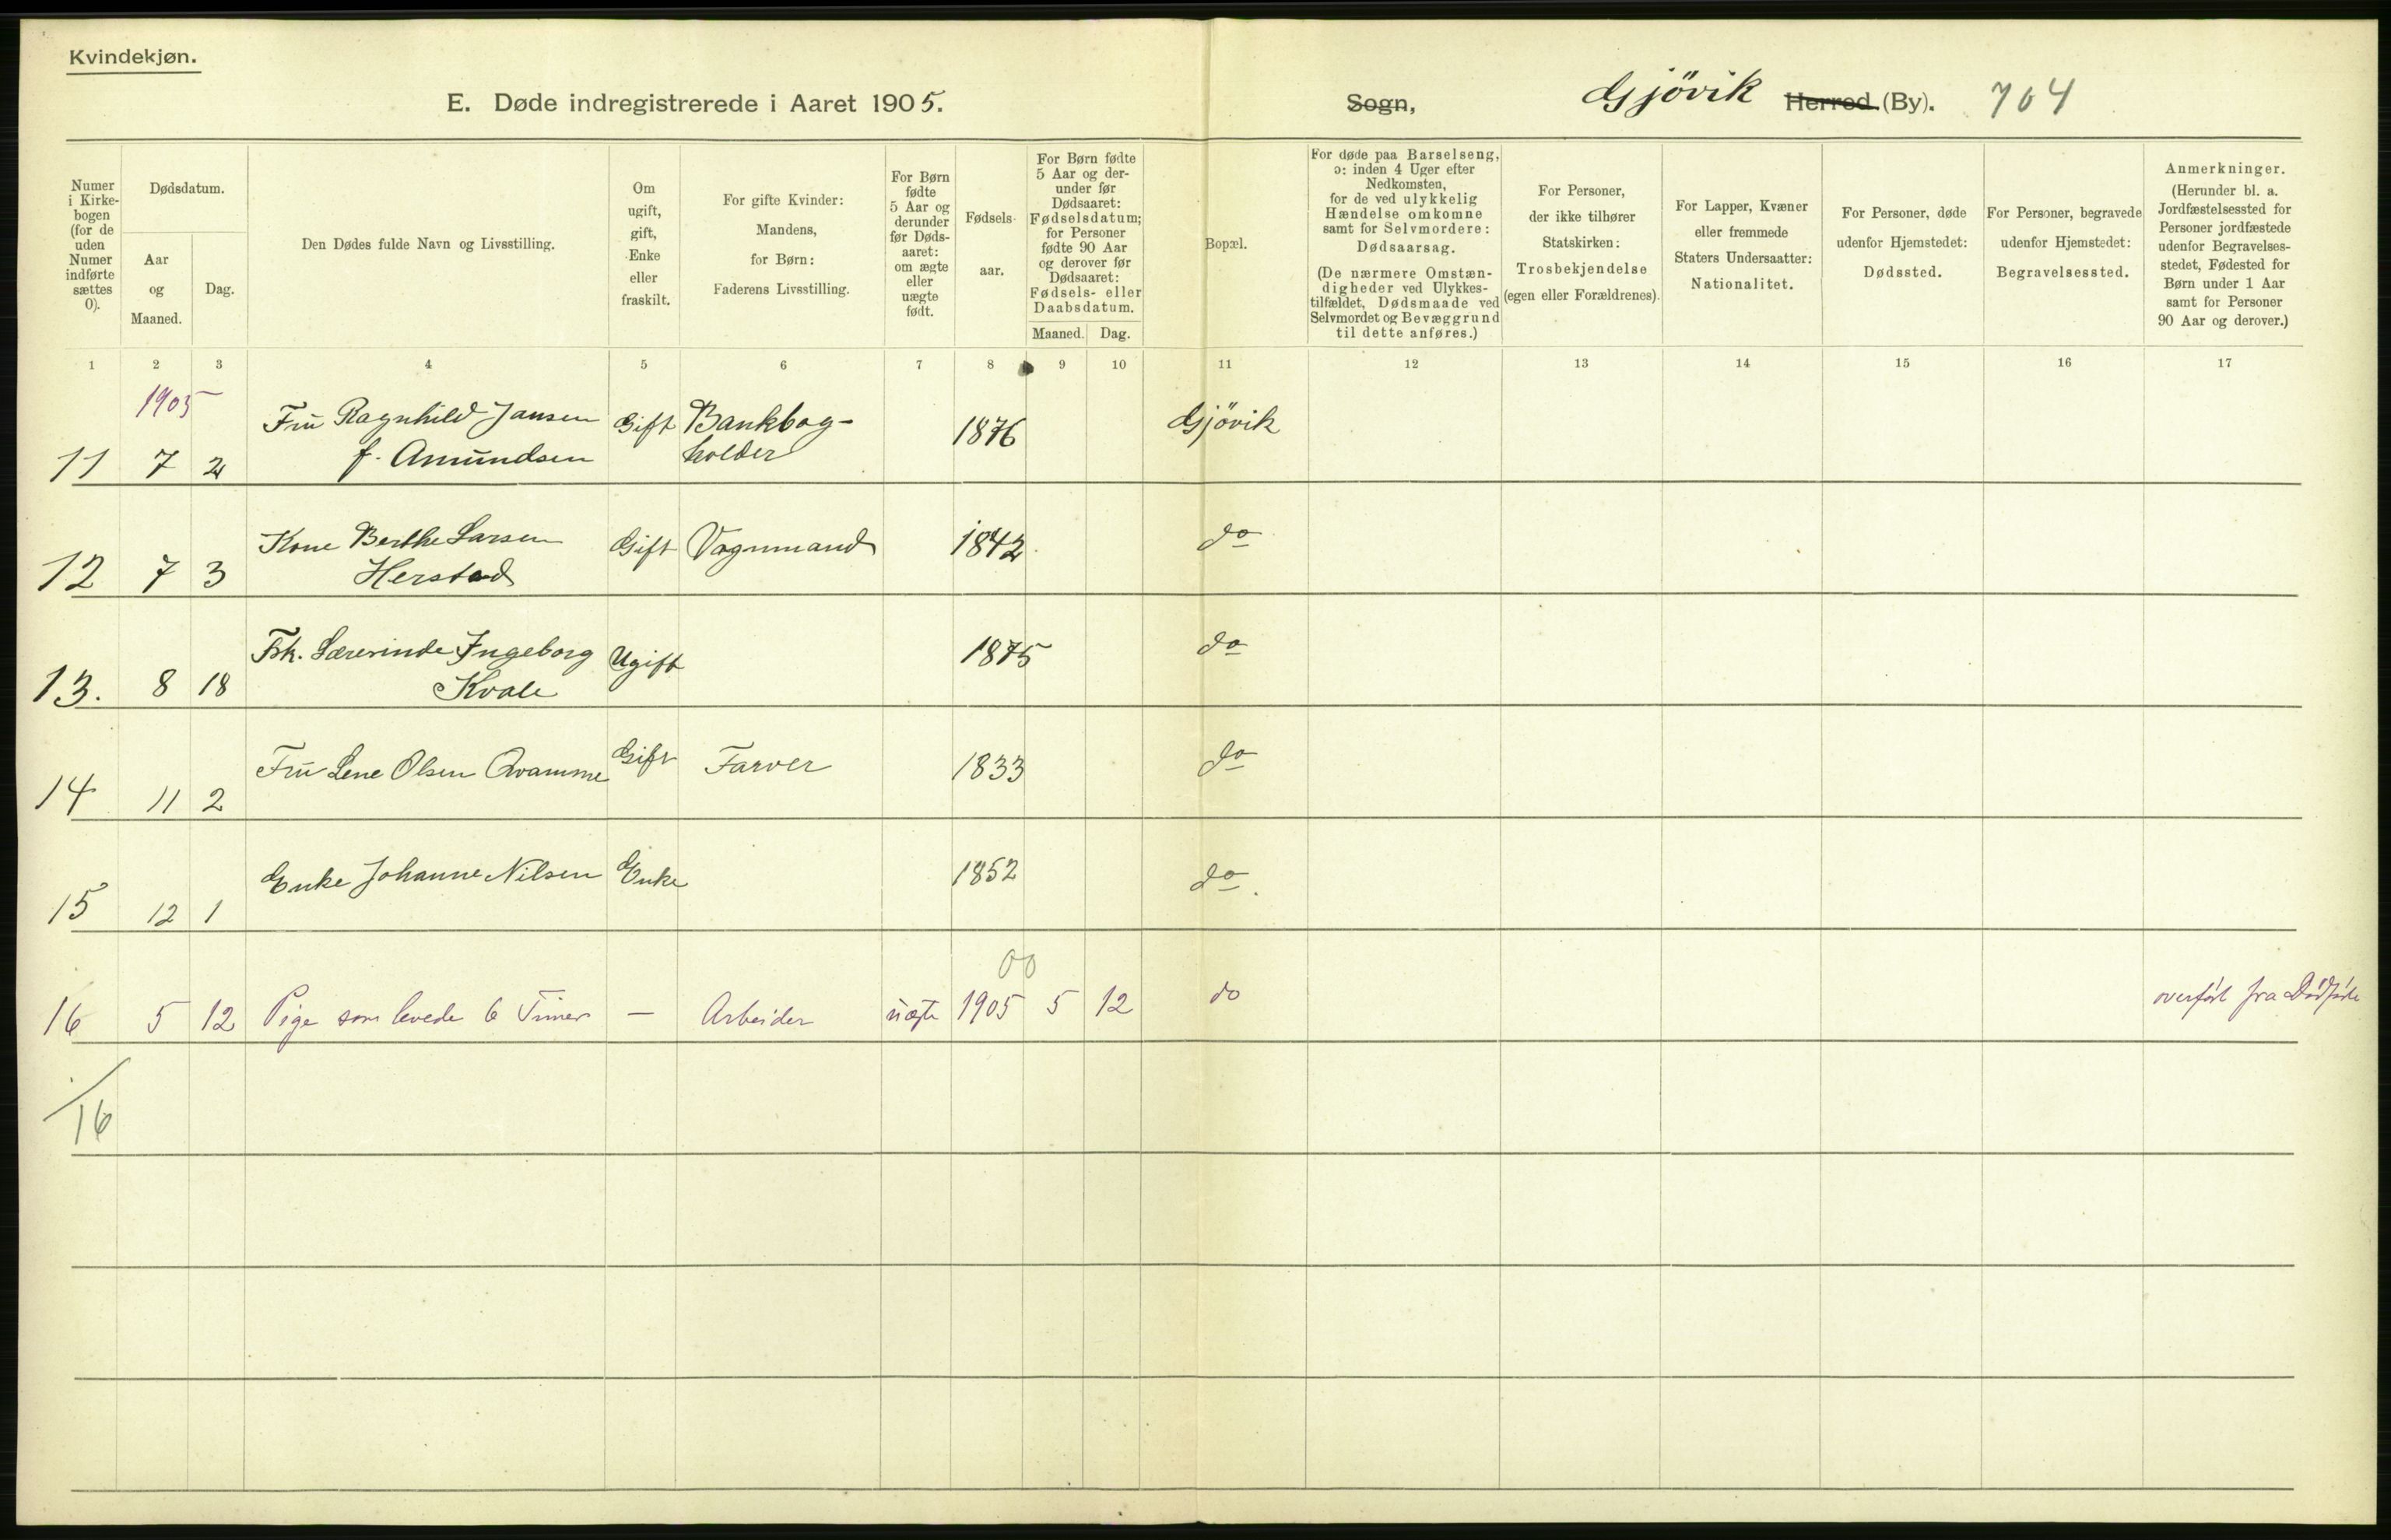 Kvindekjøn.
E. Døde indregistrerede i Aaret 1905.
Sogn, Gjövik Herred (By). 704
Numer
i Kirke-
bogen
(for de
uden
Numer
indførte
sættes
0).
Dødsdatum.
Aar
og
Maaned.
Dag.
Den Dødes fulde Navn og Livsstilling.
Om
ugift,
gift,
Enke
eller
fraskilt.
For gifte Kvinder:
Mandens,
for Børn:
Faderens Livsstilling.
For Børn
fødte
5 Aar og
derunder
før Døds-
aaret:
om ægte
eller
uægte
født.
Fødsels-
aar.
For Børn fødte
5 Aar og der-
under før
Dødsaaret:
Fødselsdatum;
for Personer
fødte 90 Aar
og derover før
Dødsaaret:
Fødsels- eller
Daabsdatum.
Maaned. Dag.
Bopæl.
For døde paa Barselseng,
ɔ: inden 4 Uger efter
Nedkomsten,
for de ved ulykkelig
Hændelse omkomne
samt for Selvmordere:
Dødsaarsag.
(De nærmere Omstæn-
digheder ved Ulykkes-
tilfældet, Dødsmaade ved
Selvmordet og Bevæggrund
til dette anføres.)
For Personer,
der ikke tilhører
Statskirken:
Trosbekjendelse
(egen eller Forældrenes).
For Lapper, Kvæner
eller fremmede
Staters Undersaatter:
Nationalitet.
For Personer, døde
udenfor Hjemstedet:
Dødssted.
For Personer, begravede
udenfor Hjemstedet:
Begravelsessted.
Anmerkninger.
(Herunder bl. a.
Jordfæstelsessted for
Personer jordfæstede
udenfor Begravelses-
stedet, Fødested for
Børn under 1 Aar
samt for Personer
90 Aar og derover.)
1 2 3 4 5 6 7 8 9 10 11 12 13 14 15 16 17
1905
Fru Ragnhild Jansen Gift Bankbog- 1876 Gjövik
11 7 2 f. Amundsen holder
Kone Berthe Larsen Gift Vognmand 1842 do
12 7 3 Herstad
Frk. Lærerinde Ingeborg Ugift 1875 do
13. 8 18 Kvale
Fru Lene Olsen Qvamme Gift Farver 1833 do
14 11 2
Enke Johanne Nilsen Enke 1852 do.
15 12 1
00
16 5 12 Pige som levede 6 Timer — Arbeider uægte 1905 5 12 do overført fra Dødfødte
16